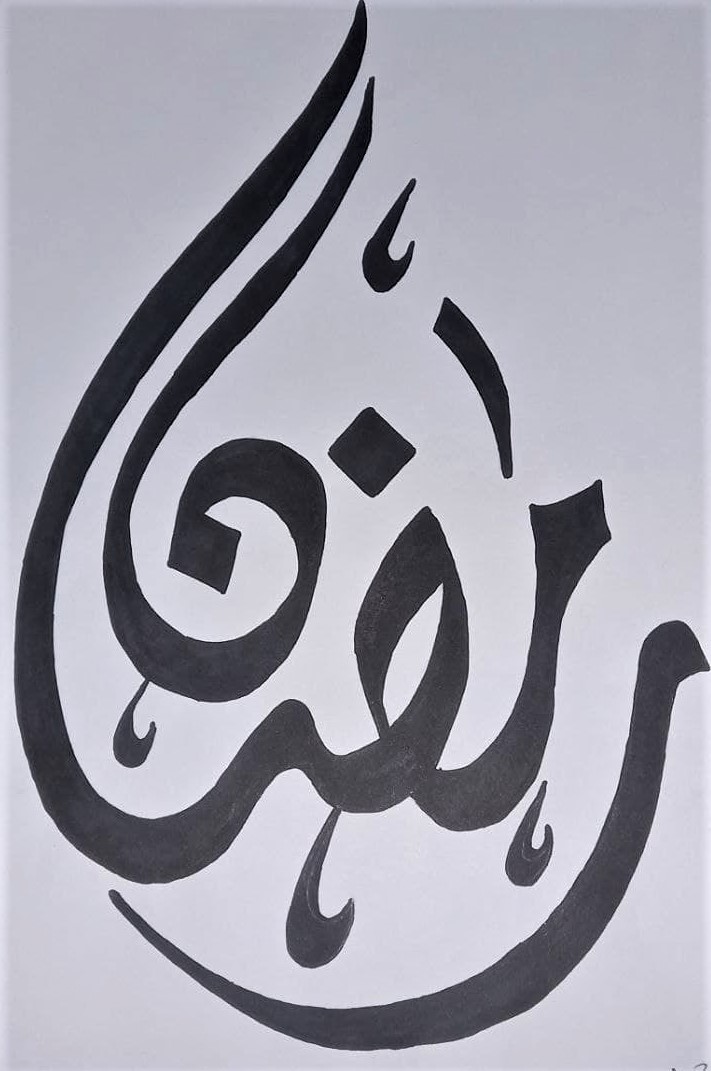 رمضان